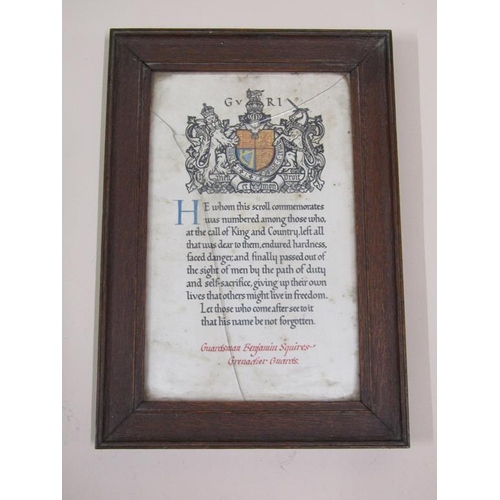 G V R I
HE whom this scroll commemorates
was numbered among those who,
at the call of King and Country, left all
that was dear to them, endured hardness,
faced danger, and finally passed out of
the sight of men by the path of duty
and self-sacrifice, giving up their own
lives that others might live in freedom.
Let those who come after see to it
that his name be not forgotten.
Guardsman Benjamin Squires
Grenadier Guards.